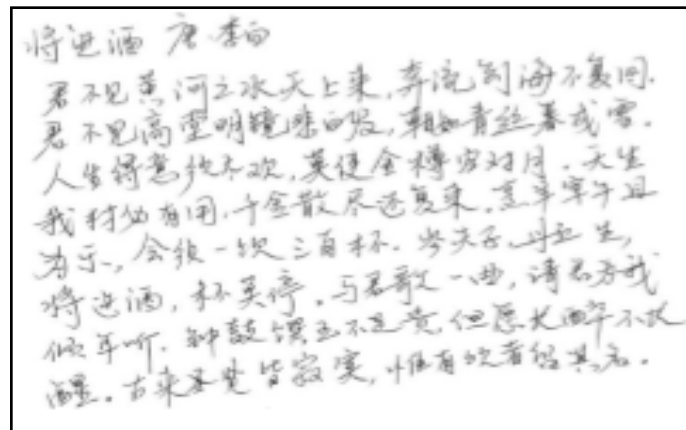 将进酒 唐·李白
君不见黄河之水天上来,奔流到海不复回.
君不见高堂明镜悲白发,朝如青丝暮成雪.
人生得意须尽欢,莫使金樽空对月.天生
我材必有用,千金散尽还复来.烹羊宰牛且
为乐,会须一饮三百杯.岑夫子,丹丘生,
将进酒,杯莫停.与君歌一曲,请君为我
倾耳听.钟鼓馔玉不足贵,但愿长醉不
醒.古来圣贤皆寂寞,惟有饮者留其名.